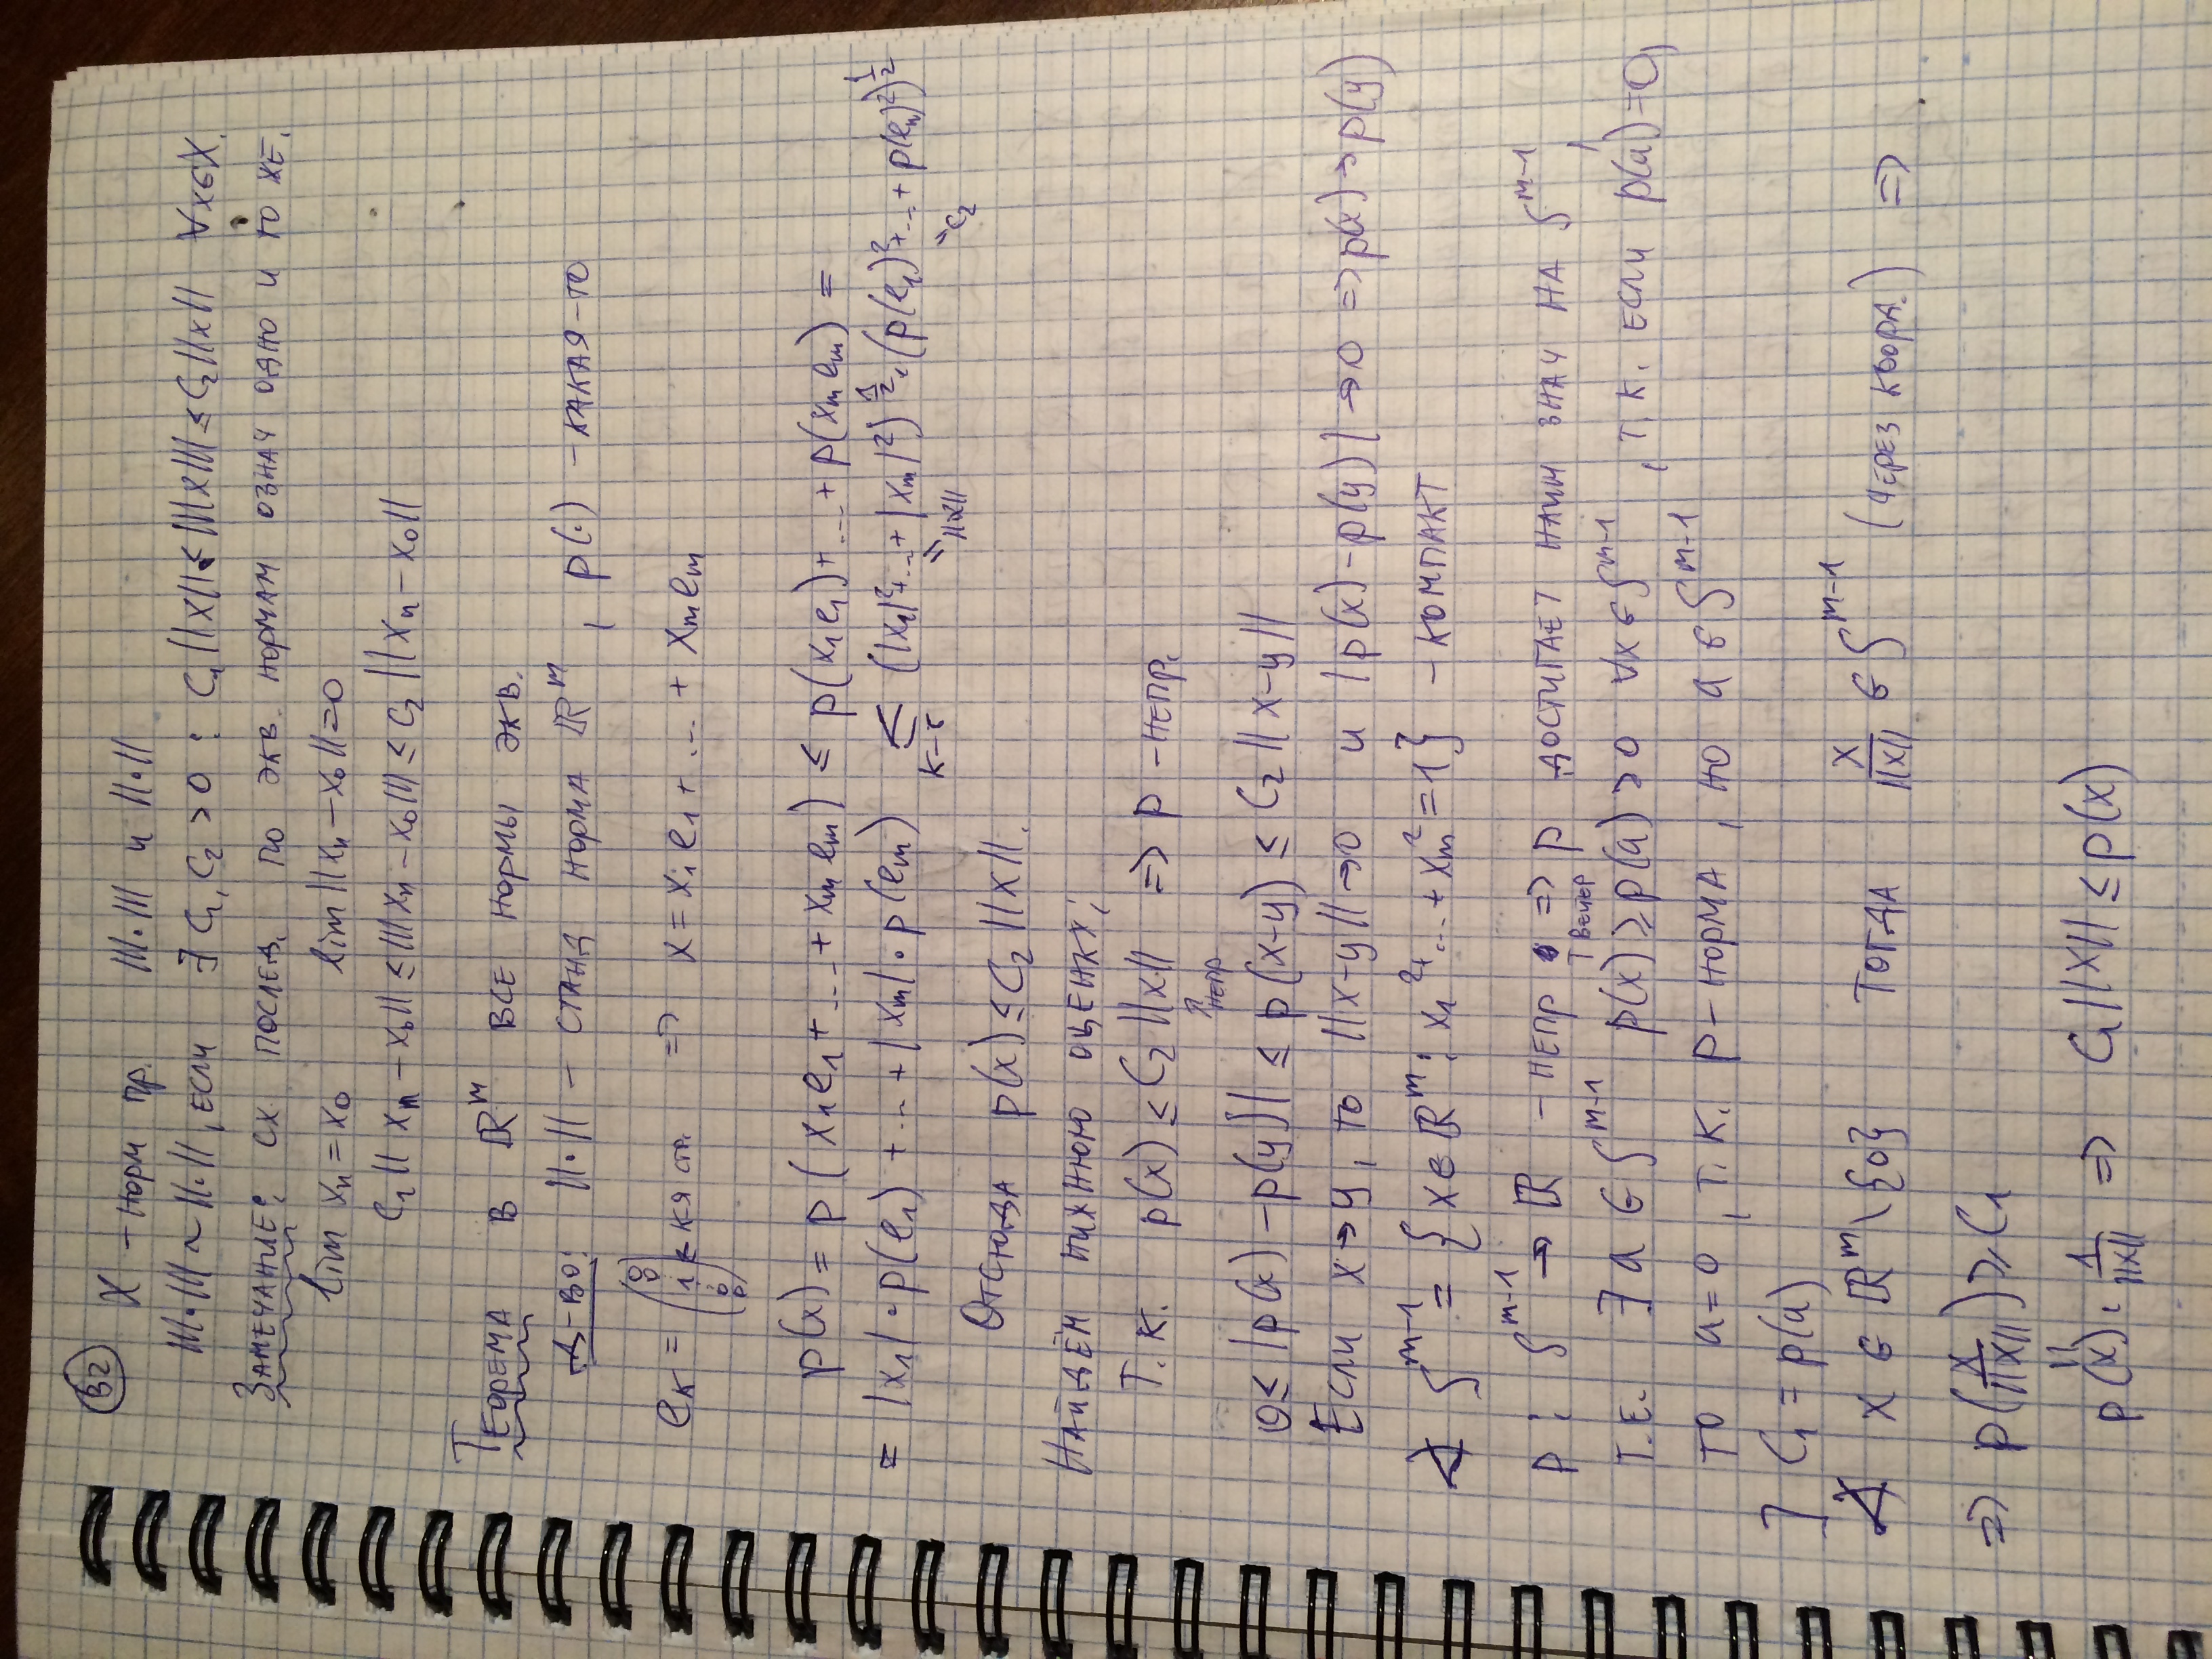 32
X – норм пр. |||·||| и ||·||
|||·||| ~ ||·||, если ∃ C₁, C₂ > 0 : C₁||x|| ≤ |||x||| ≤ C₂||x|| ∀x∈X.
Замечание: сх. послед. по экв. нормам означ одно и то же.
lim xₙ = x₀ lim ||xₙ – x₀|| = 0
C₁|| xₙ – x₀|| ≤ |||xₙ – x₀||| ≤ C₂ ||xₙ – x₀||
Теорема в ℝᵐ все нормы экв.
Д-во: ||·|| – станд норма ℝᵐ, p(·) – какая-то
eₖ = (0 0 ⋮ 1 ⋮ 0 0) ← к-я стр. ⇒ x = x₁e₁ + ... + xₘeₘ
p(x) = p(x₁e₁ + ... + xₘeₘ) ≤ p(x₁e₁) + ... + p(xₘeₘ) =
= |x₁|·p(e₁) + ... + |xₘ|·p(eₘ) ≤ (|x₁|² + ... + |xₘ|²)^½ · (p(e₁)² + ... + p(eₘ)²)^½
К–Б = ||x|| = C₂
Отсюда p(x) ≤ C₂ ||x||.
Найдём нижнюю оценку:
Т.к. p(x) ≤ C₂ ||x|| ⇒ p – непр.
↑ непр
0 ≤ |p(x) – p(y)| ≤ p(x–y) ≤ C₂ ||x–y||
Если x→y, то ||x–y||→0 и |p(x) – p(y)| → 0 ⇒ p(x) → p(y)
∢ Sᵐ⁻¹ = {x∈ℝᵐ : x₁² + ... + xₘ² = 1} – компакт
p : Sᵐ⁻¹ → ℝ – непр ⇒ p достигает наим знач на Sᵐ⁻¹,
Т Вейер
т.е. ∃ a ∈ Sᵐ⁻¹ p(x) ≥ p(a) > 0 ∀x∈Sᵐ⁻¹, т.к. если p(a)=0,
то a = 0, т.к. p – норма, но a ∈ Sᵐ⁻¹
] C₁ = p(a)
∢ x ∈ ℝᵐ \ {0} Тогда x/||x|| ∈ Sᵐ⁻¹ (через коорд.) ⇒
⇒ p(x/||x||) ≥ C₁
||
p(x) · 1/||x|| ⇒ C₁||x|| ≤ p(x)